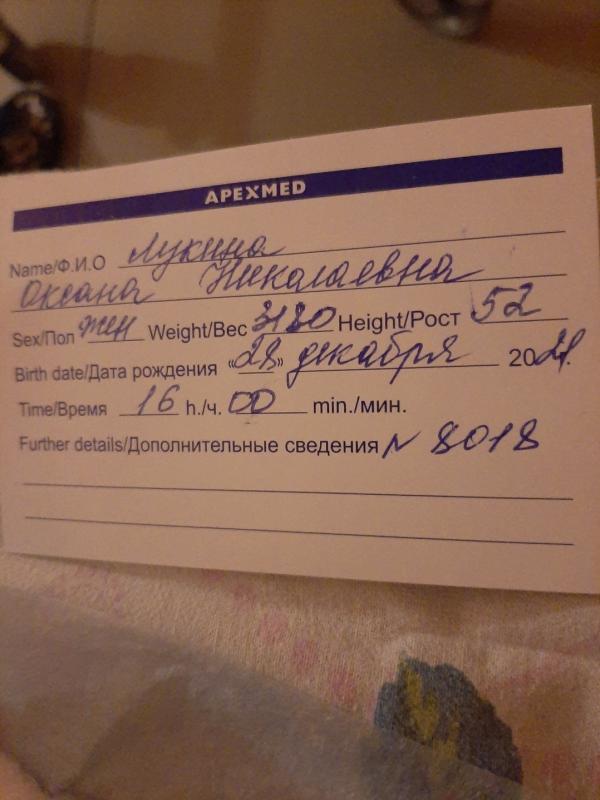 APEXMED
Name/Ф.И.О Лукина
Оксана Николаевна
Sex/Пол жен Weight/Вес 3180 Height/Рост 52
Birth date/Дата рождения «28» декабря 2021.
Time/Время 16 h./ч. 00 min./мин.
Further details/Дополнительные сведения N 8018